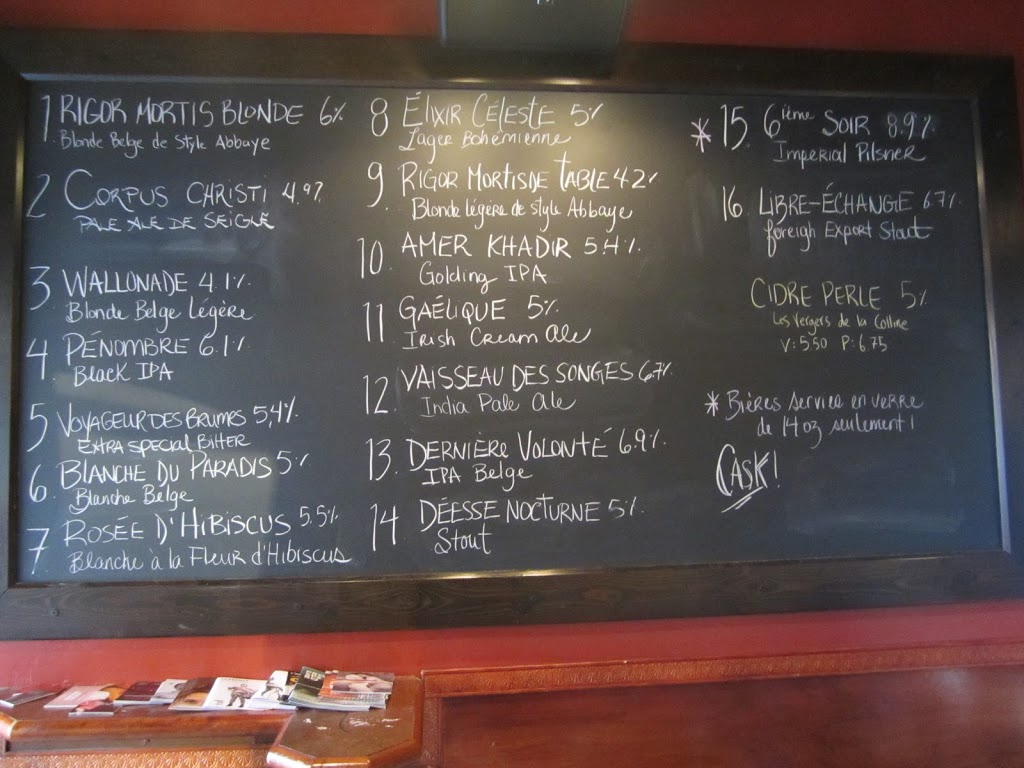 1 RIGOR MORTIS BLONDE 6%
Blonde Belge de Style Abbaye
2 CORPUS CHRISTI 4.9%
PALE ALE DE SEIGLE
3 WALLONADE 4.1%
Blonde Belge Légère
4 PÉNOMBRE 6.1%
Black IPA
5 VOYAGEUR DES BRUMES 5,4%
EXTRA SPECIAL BITTER
6. BLANCHE DU PARADIS 5%
Blanche Belge
7 ROSÉE D'HIBISCUS 5.5%
Blanche à la Fleur d'Hibiscus
8 ÉLIXIR CÉLESTE 5%
Lager Bohémienne
9 RIGOR MORTIS DE TABLE 4.2%
Blonde légère de style Abbaye
10. AMER KHADIR 5.4%
Golding IPA
11 GAÉLIQUE 5%
Irish Cream Ale
12. VAISSEAU DES SONGES 6.7%
India Pale Ale
13. DERNIÈRE VOLONTÉ 6.9%
IPA Belge
14 DÉESSE NOCTURNE 5%
Stout
* 15 6ième SOIR 8.9%
Imperial Pilsner
16 LIBRE-ÉCHANGE 6.7%
Foreigh Export Stout
CIDRE PERLE 5%
Les Vergers de la Colline
V: 5.50 P: 6.75
* Bières service en verre
de 14 oz seulement!
CASK!